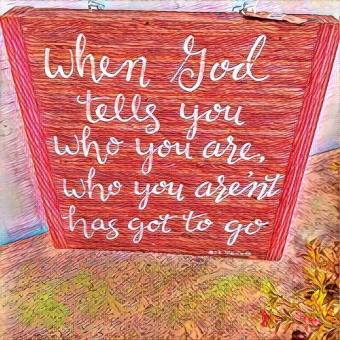 when God
tells you
who you are,
who you are'nt
has got to go